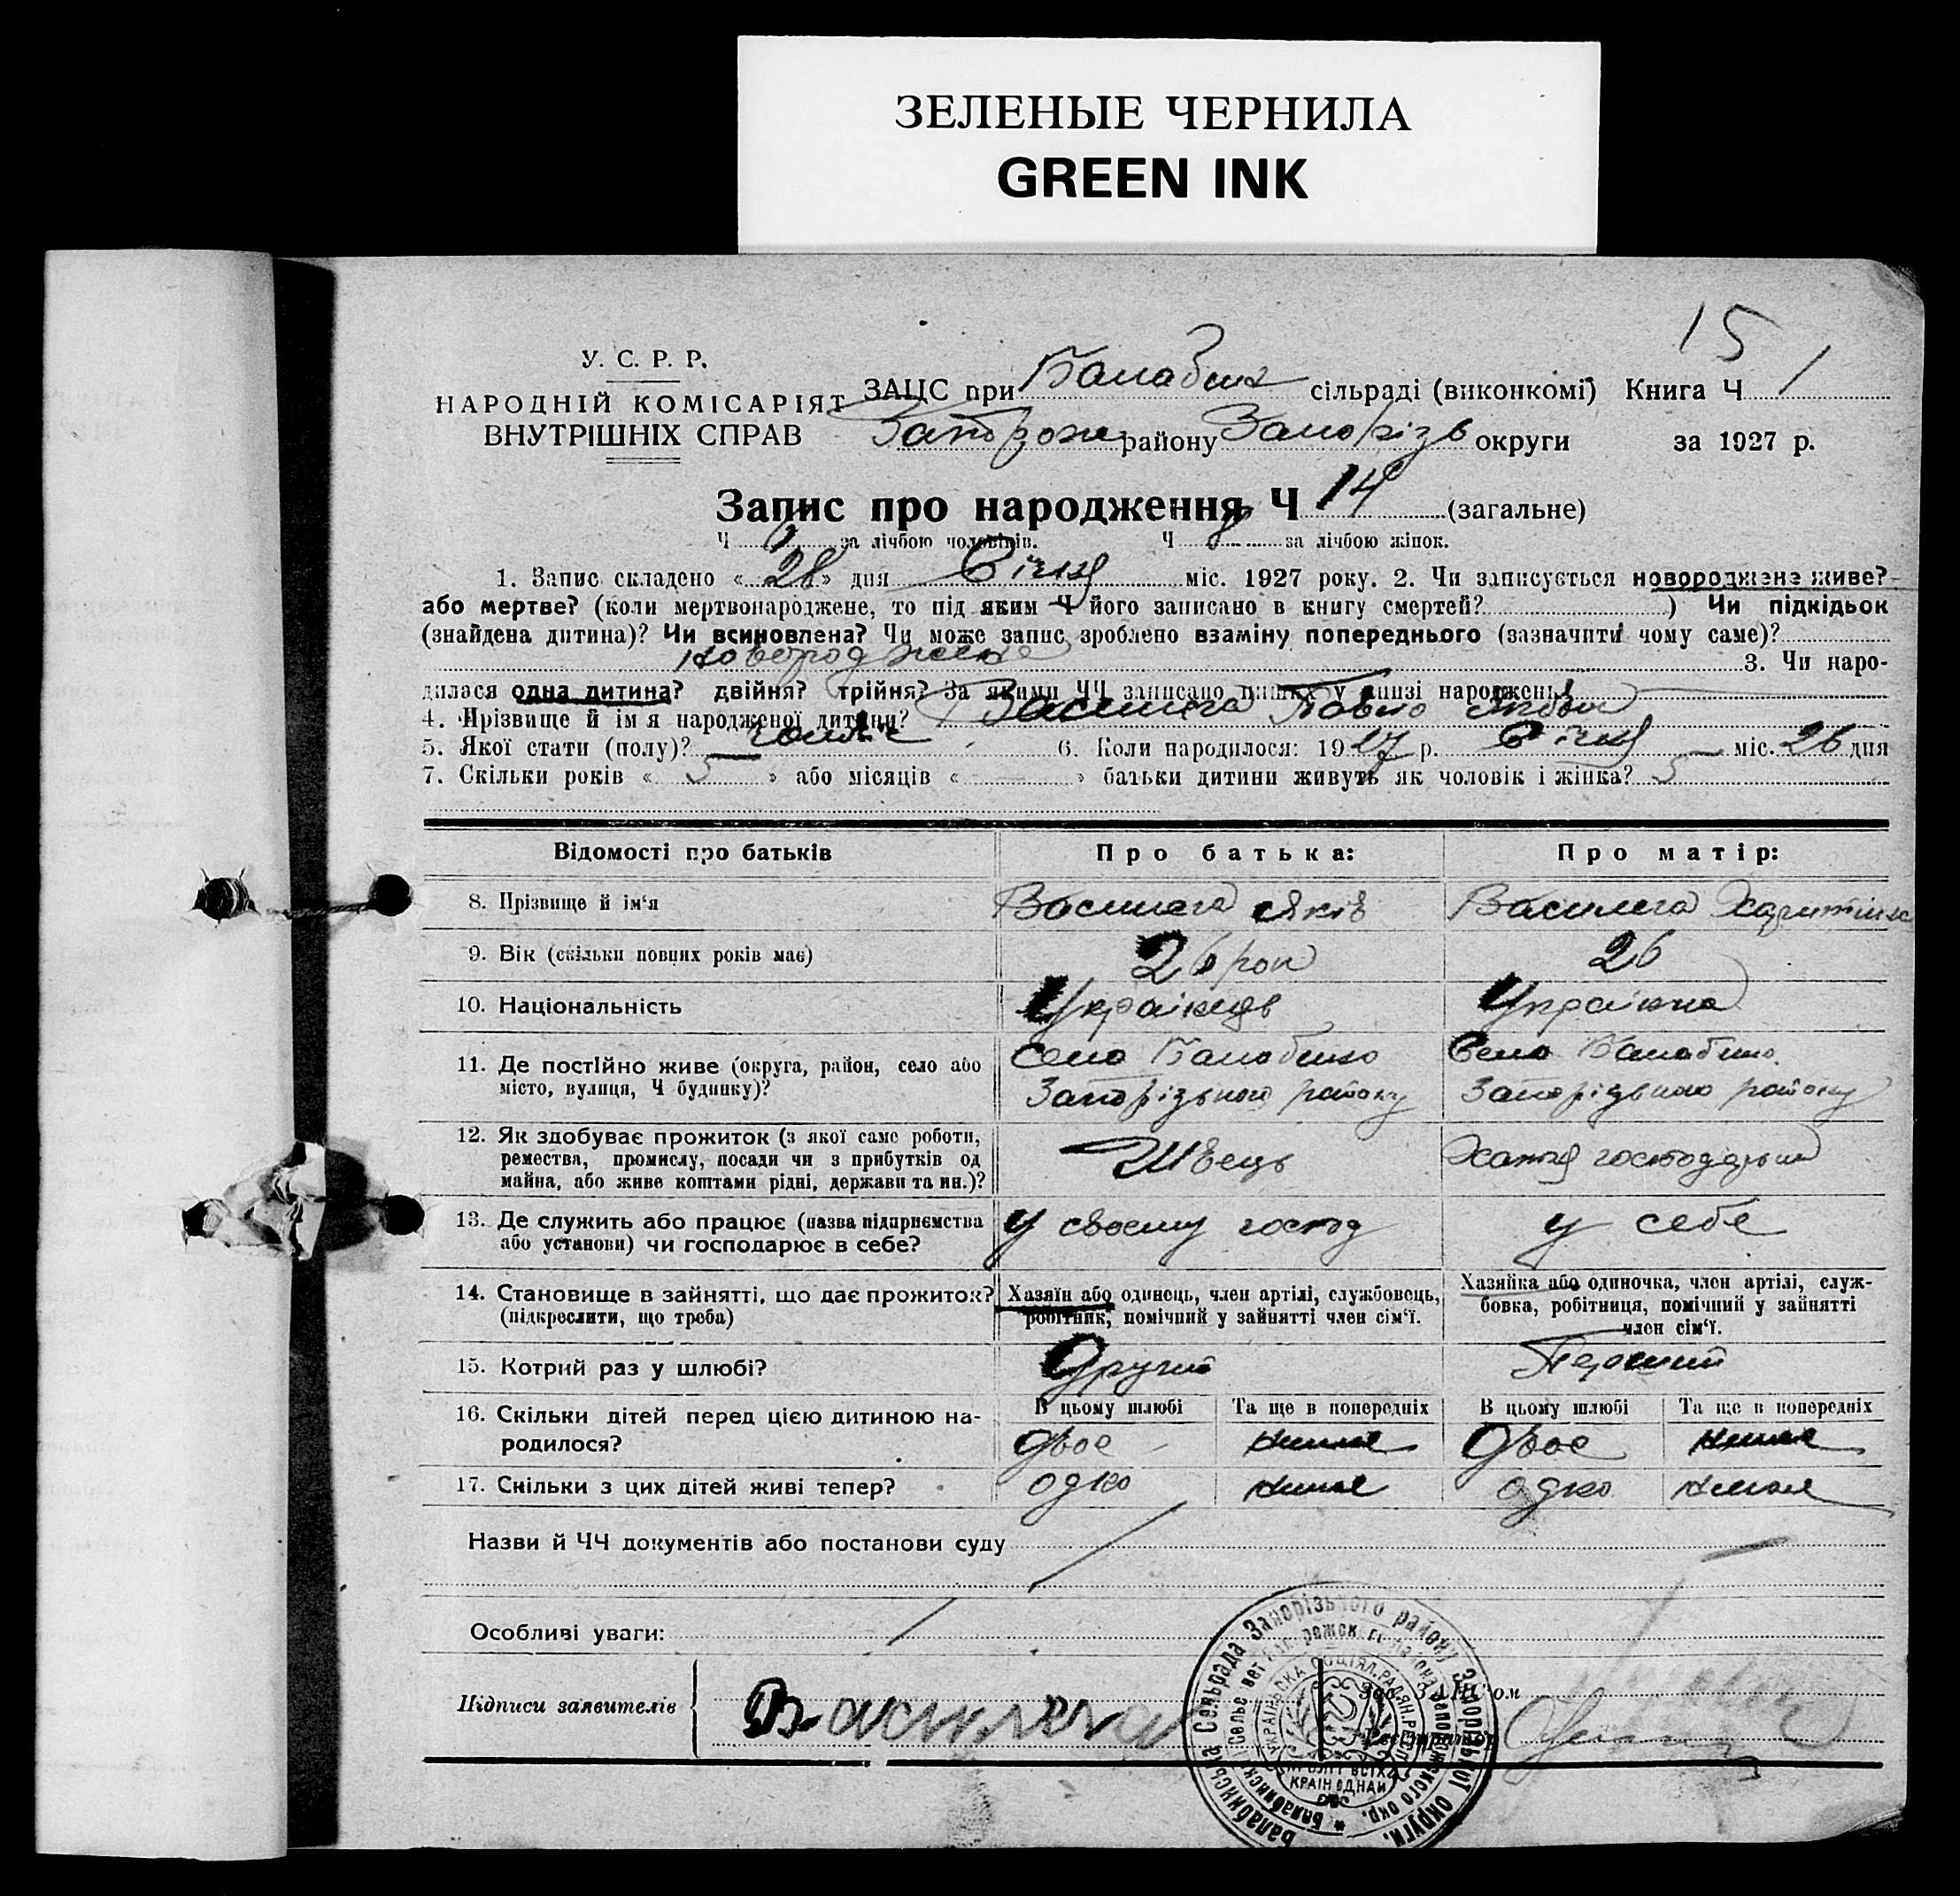 ЗЕЛЕНЫЕ ЧЕРНИЛА
GREEN INK
15
У. С. Р. Р.
НАРОДНІЙ КОМІСАРІЯТ
ВНУТРІШНІХ СПРАВ
ЗАЦС при Балабинк сільраді (виконкомі) Книга Ч 1
району Запорізь округи за 1927 р.
Запис про народження Ч 14 (загальне)
Ч за лічбою чоловіків. Ч 8 за лічбою жінок.
1. Запис складено « 28 » дня Січня міс. 1927 року. 2. Чи записується новороджене живе?
або мертве? (коли мертвонароджене, то під яким Ч його записано в книгу смертей? ) Чи підкідьок
(знайдена дитина)? Чи всиновлена? Чи може запис зроблено взаміну попереднього (зазначити чому саме)?
новороджене 3. Чи наро-
дилася одна дитина? двійня? трійня? За якими ЧЧ записано инших у книзі народжень?
4. Прізвище й ім'я народженої дитини? Василега Павло
5. Якої стати (полу)? 6. Коли народилося: 1927 р. Січня міс. 26 дня
7. Скільки років « 5 » або місяців « — » батьки дитини живуть як чоловік і жінка? 5
Відомості про батьків Про батька: Про матір:
8. Прізвище й ім'я Василега Яків Василега
9. Вік (скільки повних років має) 26 рок 26
10. Національність Українець Українка
11. Де постійно живе (округа, район, село або
місто, вулиця, Ч будинку)?
Село Балабино
Запорізького району
Село Балабино
Запорізького району
12. Як здобуває прожиток (з якої саме роботи,
ремества, промислу, посади чи з прибутків од
майна, або живе коштами рідні, держави та ин.)?
Швець
Хатня господарька
13. Де служить або працює (назва підприємства
або установи) чи господарює в себе?
У своему господ
у себе
14. Становище в зайнятті, що дає прожиток?
(підкреслити, що треба)
Хазяїн або одинець, член артілі, службовець,
робітник, помічний у зайнятті член сім'ї.
Хазяйка або одиночка, член артілі, служ-
бовка, робітниця, помічний у зайнятті
член сім'ї.
15. Котрий раз у шлюбі? Другий Перший
16. Скільки дітей перед цією дитиною на-
родилося?
В цьому шлюбі Та ще в попередніх В цьому шлюбі Та ще в попередніх
двое немае двое немае
17. Скільки з цих дітей живі тепер? одно немае одно немае
Назви й ЧЧ документів або постанови суду
Особливі уваги:
Підписи заявителів Василега
Зав. ЗАЦС'ом
Реєстратор
Балабинська Сельрада Запорізького району Запорізької округи.
УКРАЇНСЬКА СОЦІЯЛ. РАДЯН. РЕСП.
ПРОЛЕТ. ВСІХ
КРАЇН ЄДНАЙ